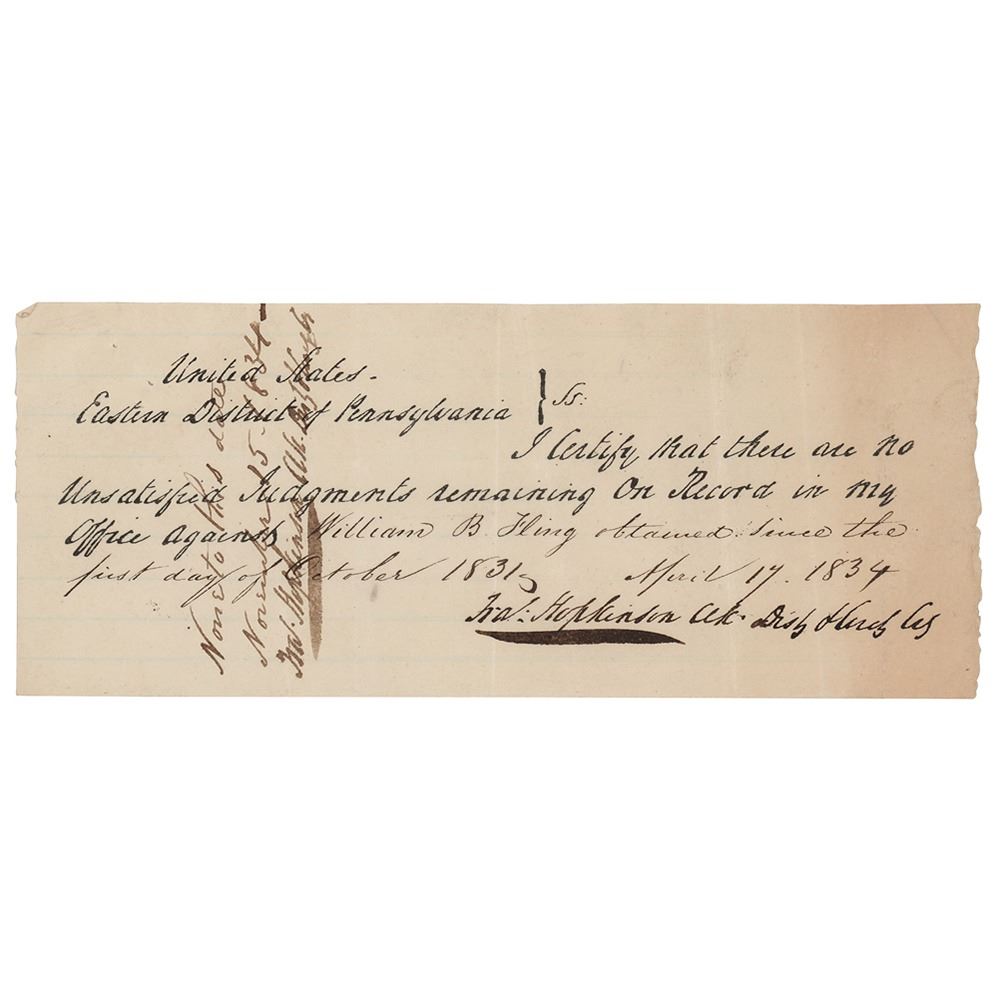 United States.
Eastern District of Pennsylvania } Ss:
I Certify that there are no
Unsatisfied Judgments remaining On Record in my
Office against William B Fling obtained since the
first day of October 1831, April 17. 1834
Fras: Hopkinson Clk Dist & Circt Ct
None to this date
November 15 - 1834
Fras: Hopkinson Clk